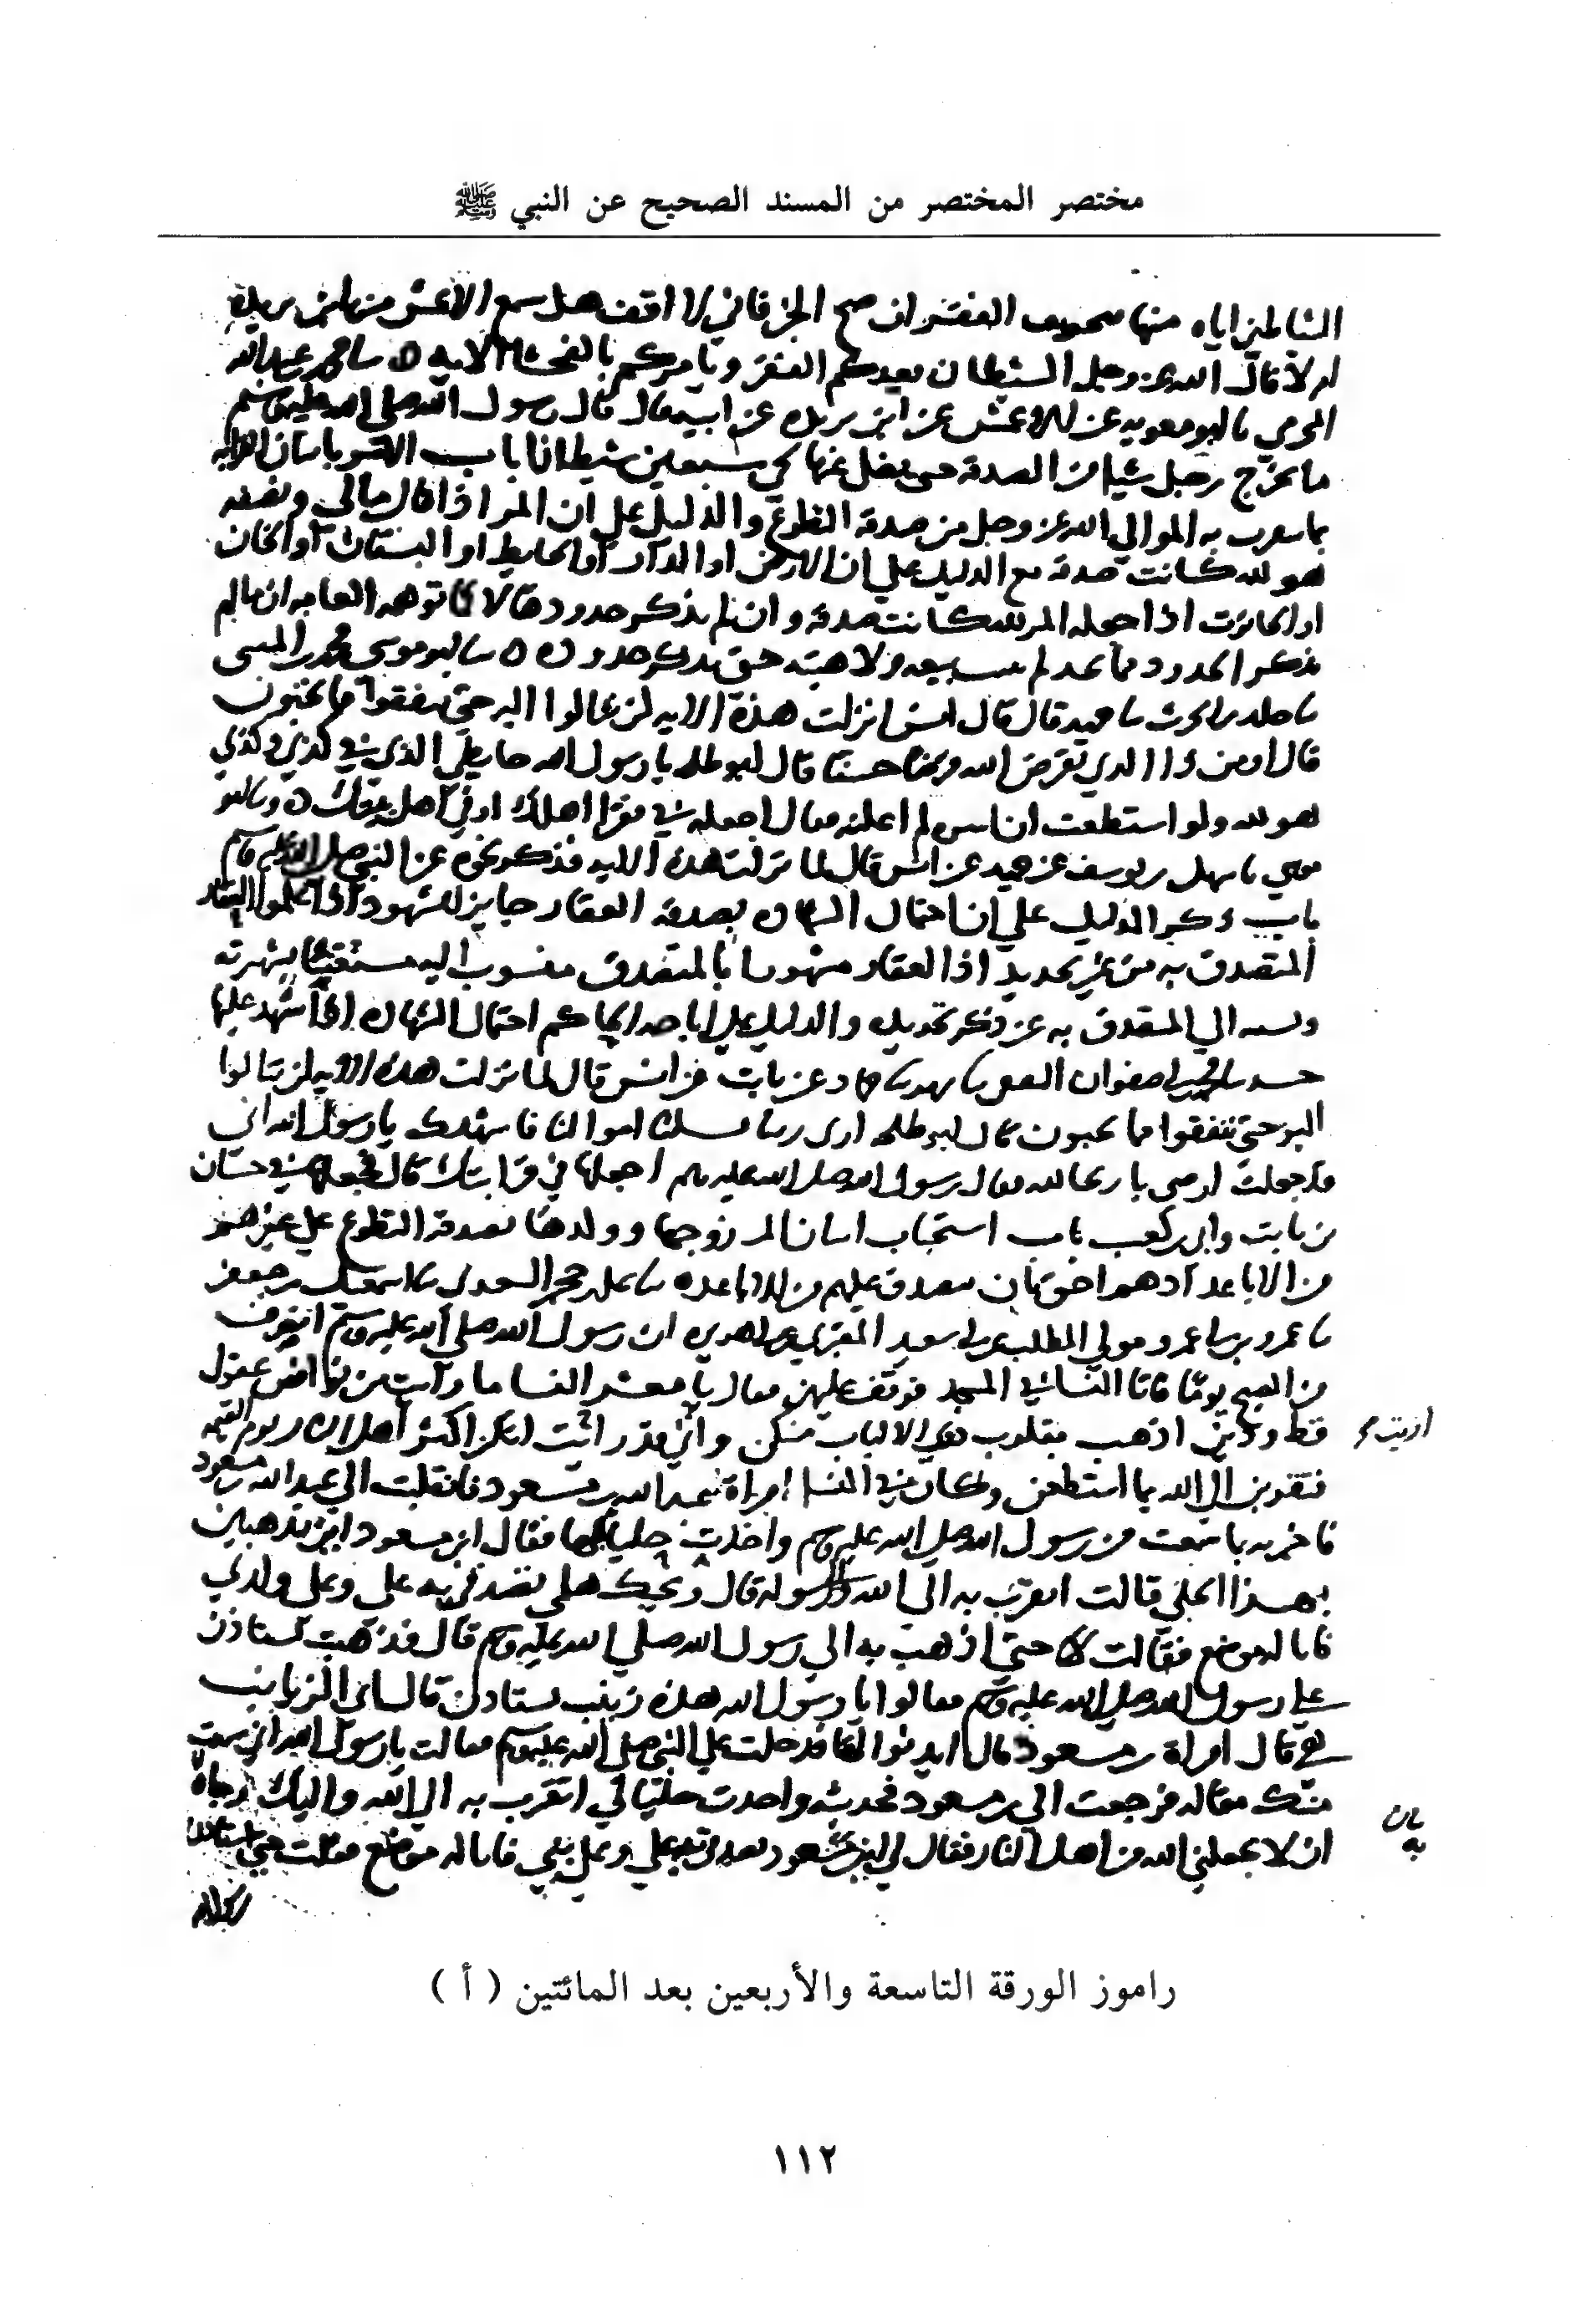 مختصر المختصر من المسند الصحيح عن النبي ﷺ
الشياطين اياه منها بتخويف الفقر ان صح الخبر فاني لا اقف هل سمع الاعمش من ابن بريدة
ام لا قال الله عز وجل الشيطان يعدكم الفقر ويامركم بالفحشا الايه محمد عبد الله
المخرمي ابو معويه عن الاعمش عن ابن بريده عن ابيه قال قال رسول الله صلى الله عليه وسلم
ما يخرج رجل شيا من الصدقة حتى يفك عنها لحيي سبعين شيطانا باب
الموالي الله عز وجل من صدقة التطوع والدليل على ان المر اذا قال مالي
هو لله كانت صدقة مع الدليل على ان الارض او الدار او الحايط او البستان او الخان
او الحانوت اذا جعله المر لله كانت صدقة وان لم يذكر حدودها لا كما توهمه العامه ان ما لم
يذكر الحدود بيعه ولا هبته حتى يذكر حدوده ابو موسى محمد بن المثنى
خلد بن الحرث حميد قال قال انس لما نزلت هذه الايه لن تنالوا البر حتى تنفقوا مما تحبون
قال او من ذا الذي يقرض الله قرضا حسنا قال ابو طلحه يا رسول الله حايطي الذي في كذي وكذي
هو لله ولو استطعت ان اسره لم اعلنه فقال اجعله في فقرا اهلك او في اهل بيتك
موسى سهل بن يوسف عن حميد عن انس قال لما نزلت هذه الايه فذكر نحوه عن النبي صلى الله عليه وسلم
باب ذكر الدليل على ان بصدقة العقار جايز للشهود اذا علموا العقار
المتصدق به من غير تحديد اذا العقار مشهورا بالمتصدق منسوب اليه مستغنيا بشهرته
ونسبه الى المتصدق به عن ذكر تحديده والدليل على اباحه الحاكم احتمال الشهاده اذا اشهد عليها
صفوان بهز حماد عن ثابت عن انس قال لما نزلت هذه الايه لن تنالوا
البر حتى تنفقوا مما تحبون قال ابو طلحه ارى ربنا يسلنا اموالنا فاشهدك يا رسول الله اني
قد جعلت ارضي باريحا لله فقال رسول الله صلى الله عليه وسلم اجعلها في قرابتك قال فجعلها في حسان
بن ثابت وابي بن كعب باب استحباب اتيان المر زوجها وولدها بصدقة التطوع على غيرهم
من الاباعد اذ هم احق بان يتصدق عليهم من الاباعد علي بن حجر السعدي اسمعيل بن جعفر
عمرو بن ابي عمرو مولى المطلب عن ابي سعيد المقبري عن ابي هريره ان رسول الله صلى الله عليه وسلم انصرف
من الصبح يوما فاتا النسا في المسجد فوقف عليهن فقال يا معشر النسا ما رايت من نواقص عقول
قط ودين اذهب بقلوب ذوي الالباب منكن واني قد رايت انكن اكثر اهل النار يوم القيمه
فتقربن الى الله بما استطعتن وكان في النسا امراة عبد الله بن مسعود فانقلبت الى عبد الله بن مسعود
فاخبرته بما سمعت من رسول الله صلى الله عليه وسلم واخذت حليا لها فقال ابن مسعود اين تذهبين
بهذا الحلي قالت اتقرب به الى الله ورسوله قال ويحك هلمي تصدقي به علي وعلى ولدي
فانا له موضع فقالت لا حتى اذهب به الى رسول الله صلى الله عليه وسلم قال فذهبت تستاذن
على رسول الله صلى الله عليه وسلم فقالوا يا رسول الله هذه زينب تستاذن قال اي الزيانب
هي قال امراة بن مسعود قال ايذنوا لها فدخلت على النبي صلى الله عليه وسلم فقالت يا رسول الله اني سمعت
منك مقاله فرجعت الى بن مسعود فحدثته واخذت حليا لي اتقرب به الى الله واليك رجاة
ان لا يجعلني الله من اهل النار فقال لي ابن مسعود تصدقي به علي وعلى بني فانا له موضع فقلت حتى استاذن
راموز الورقة التاسعة والأربعين بعد المائتين ( أ )
١١٢